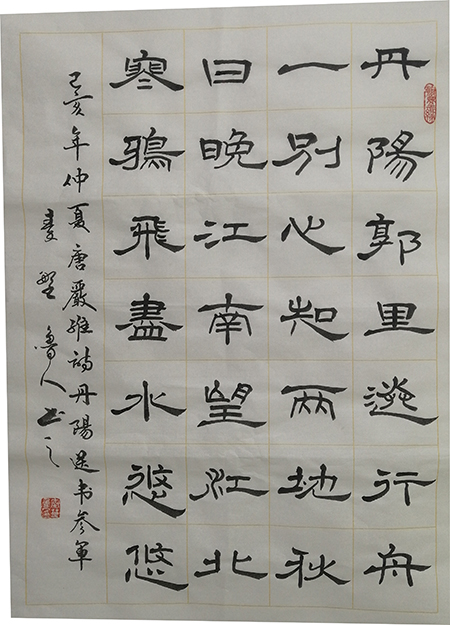 丹陽郭里送行舟
一別心知兩地秋
日晚江南望江北
寒鴉飛盡水悠悠
己亥年仲夏唐嚴維詩丹陽送韦參軍
鲁人书之